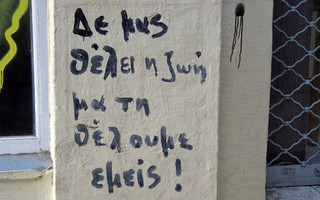 Δε μας
θέλει η ζωή
μα τη
θέλουμε
εμείς!